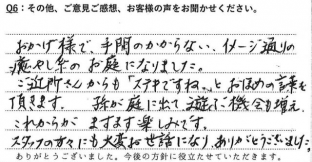 Q6：その他、ご意見ご感想、お客様の声をお聞かせください。
おかげ様で、手間のかからない、イメージ通りの
癒やし系のお庭になりました。
ご近所さんからも「ステキですね。」とお褒めの言葉を
頂きます。 孫が庭に出て遊ぶ機会も増え
これからが ますます楽しみです。
スタッフの方々にも大変お世話になり、ありがとうございました。
ありがとうございました。今後の方針に役立たせていただきます。